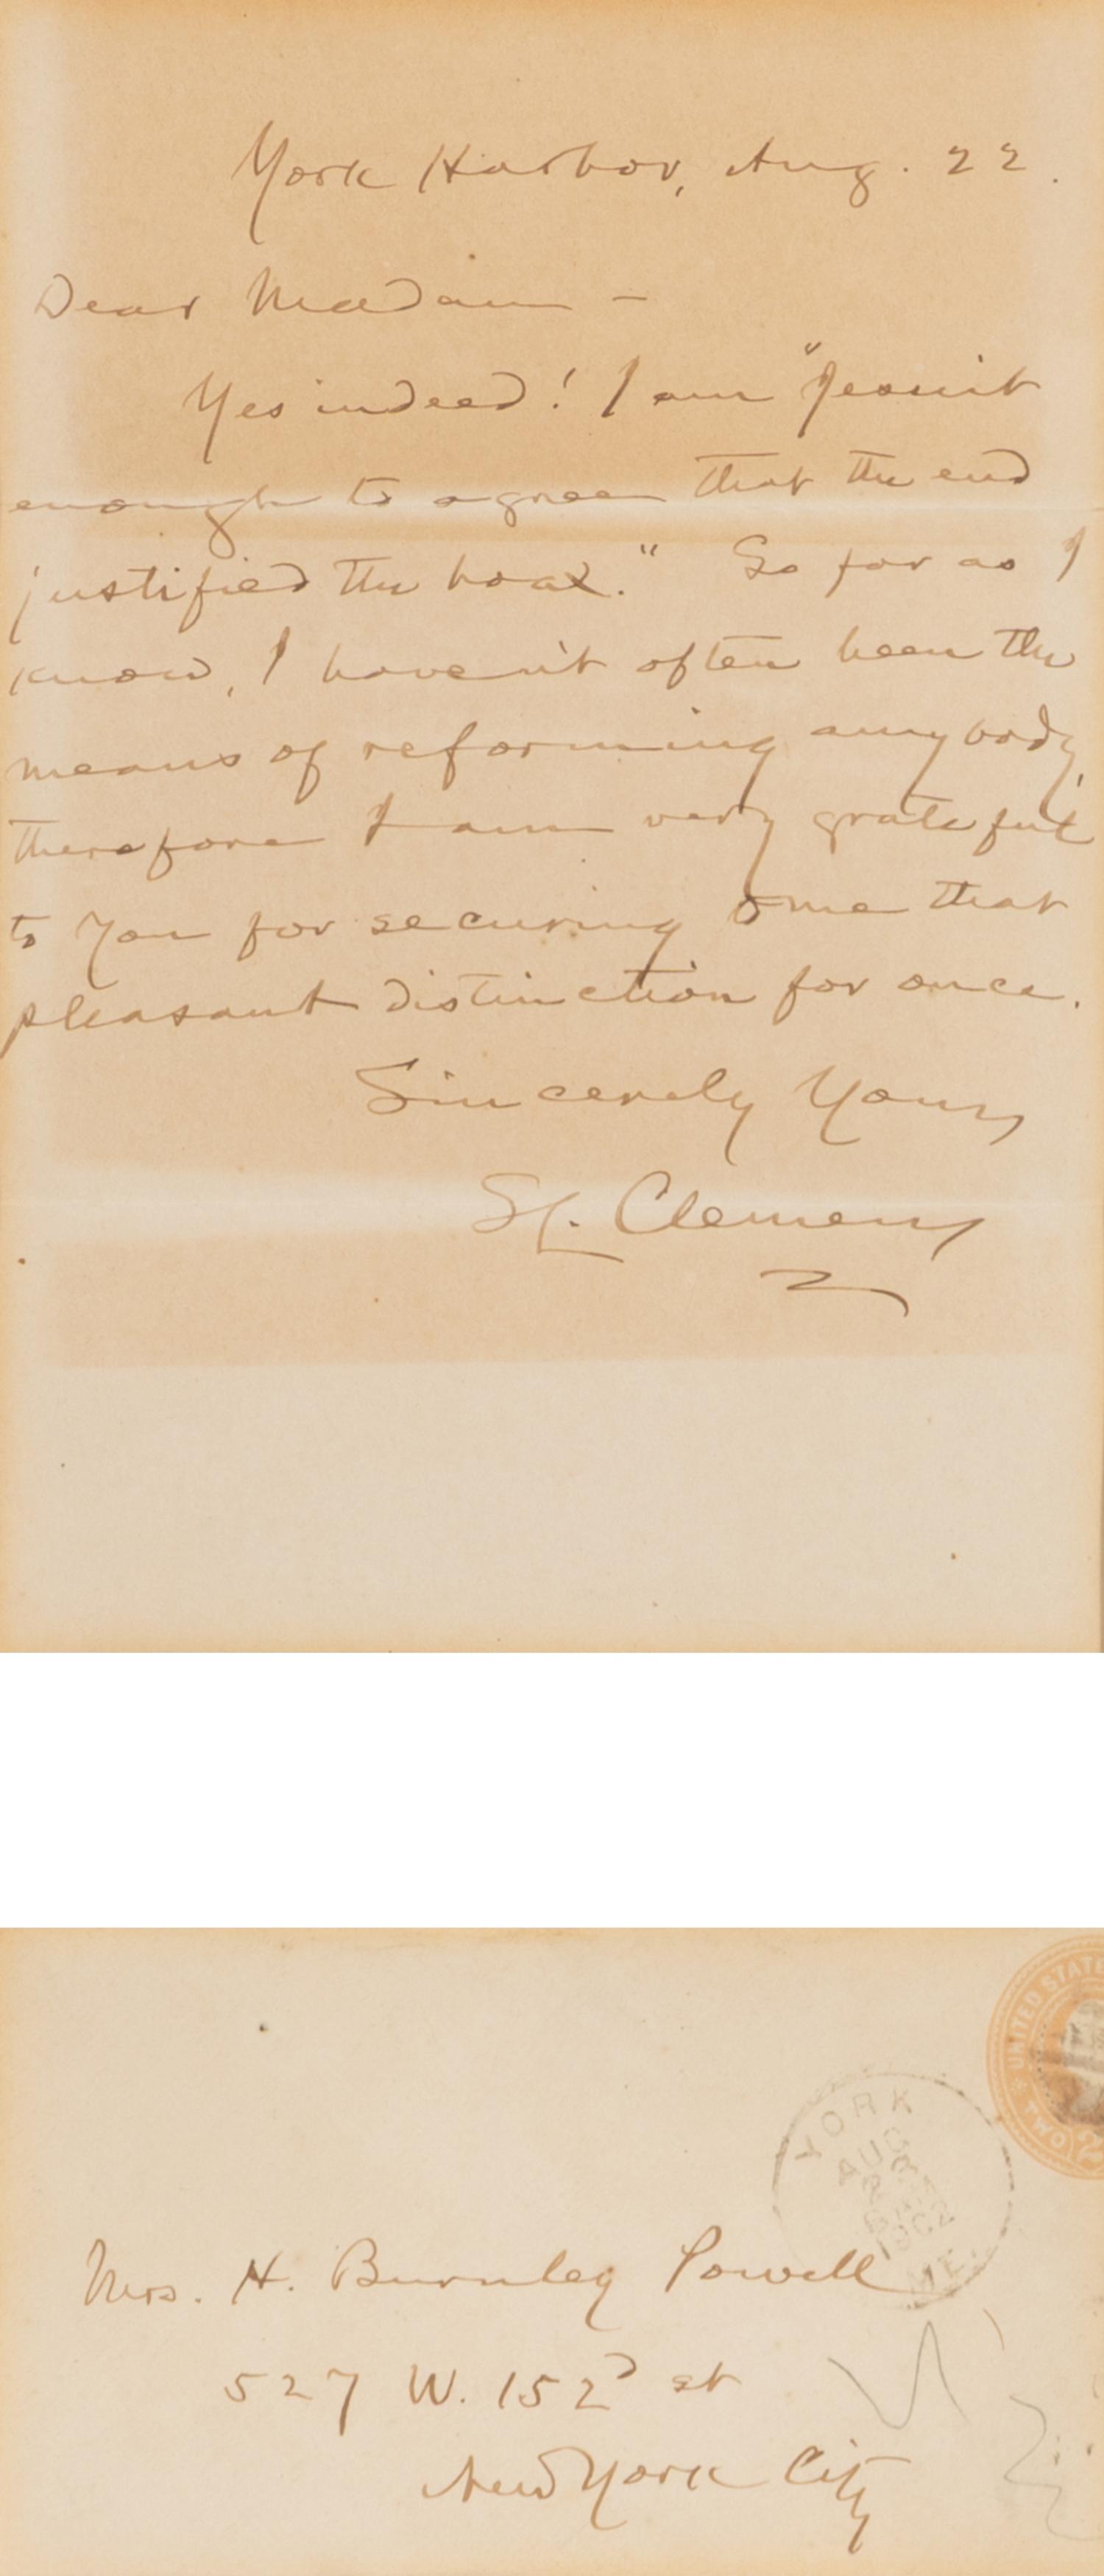 York Harbor, Aug. 22.
Dear Madam –
Yes indeed! I am "Jesuit
enough to agree that the end
justified the hoax." So far as I
know, I haven't often been the
means of reforming anybody,
therefore I am very grateful
to you for securing me that
pleasant distinction for once.
Sincerely Yours
SL. Clemens
UNITED STATE
TWO 2
YORK
AUG
1902
ME.
Mrs. H. Burnley Powell
527 W. 152d st
New York City